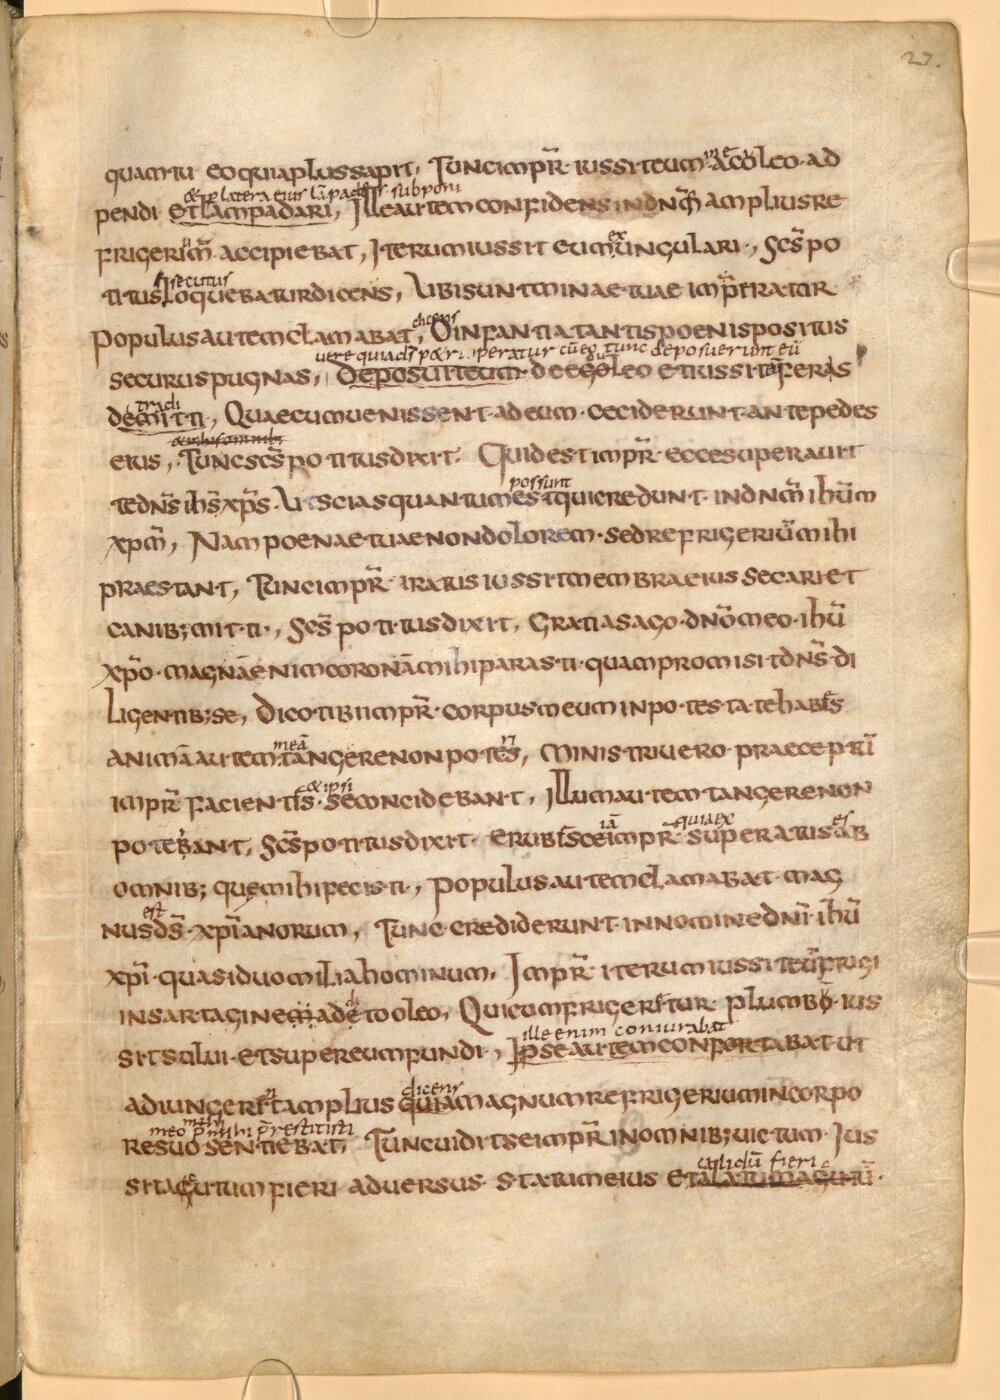 27.
quam tu eo quia plus sapit, Tunc impr̄ iussit eum in eculeo ad
& p latera eius lāpades subponi
pendi et lampadari, Ille autem confidens in dnm̄ amplius re
frigeriū accipiebat, Iterum iussit eum exungulari, Scs̄ po
secutus
titus loquebatur dicens, Ubi sunt minae tuae imperatur
dicens
populus autem clamabat, O infantia tantis poenis positus
vere quia ds̄ superatur cū eo tunc deposuerunt eū
securus pugnas, Deposuit eum de eculeo et iussit eū feras
tradi
demitti, Quaecumuenissent ad eum ceciderunt ante pedes
eius, Tunc scs̄ potitus dixit Quid est impr̄ ecce superauit
possunt
te dn̄s ihs̄ xps̄ Ut scias quantum est qui credunt in dnm̄ ihūm
xpm̄, Nam poenae tuae non dolorem sed refrigeriūm ihi
praestant, Tunc impr̄ iratus iussit membra eius secari et
canib; mitti, Scs̄ potitus dixit, Gratias ago dnō meo ihū
xpō magnā enim coronā mihi parasti quam promisit dn̄s di
ligentib; se, Dico tibi impr̄ corpus meum in potestate habes
meā
animā autem tangere non potes, Ministri uero praeceptū
& ipsi
impr̄ facientes se concidebant, Illum autem tangere non
iā quia ex es
potebant, Scs̄ potitus dixit erubesce impr̄ superatus ab
omnib; quę mihi fecisti, Populus autem clamabat mag
est
nus ds̄ xpīanorum, Tunc crediderunt in nomine dnī ihū
xpī quasi duo milia hominum, Impr̄ iterum iussit eū frigi
in sartagine de oleo, Qui cum frigeretur plumbū ius
ille enim coniurabat
sit sului et super eum fundi, Ipse autem confortabat ut
dicens
adiungeret amplius quia magnum refrigerium in corpo
meo mihi prestitisti
re suo sentiebat, Tunc uidit se impr̄ in omnib; uictum Ius
calidū fieri
sit acutum fieri aduersus statum eius et alatum acutū